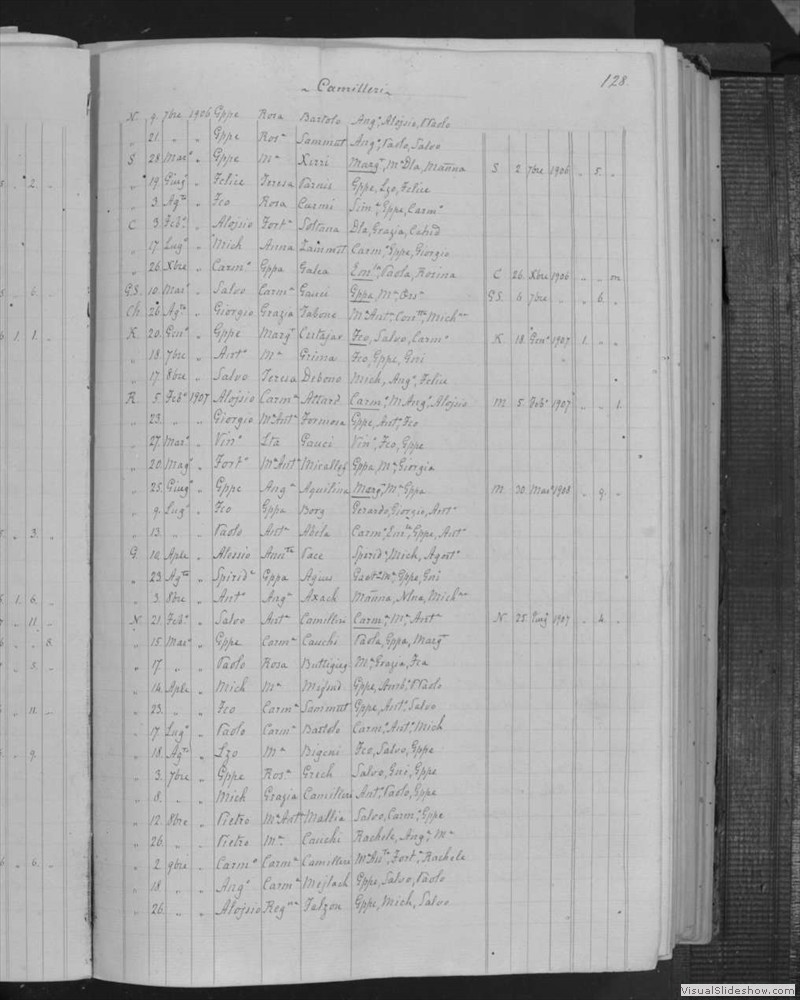 Camilleri 128
N. 9. 7bre 1906 Gppe Rosa Bartolo Angᵒ, Alojsio, Paolo
„ 21. „ „ Gppe Rosᵃ Sammut Angᵒ, Paolo, Salvo
S 28. Marᵒ „ Gppe Mᵃ Xirri Margᵗ, Mᵃ Dla, Mañna S 2. 7bre 1906 „ 5. „
„ 19. Giugᵒ „ Felice Teresa Farnis Gppe, Lzo, Felice
„ 3. Agᵗᵒ „ Fco Rosa Curmi Simᵉ, Gppe, Carmᵒ
C 3. Febᵒ „ Alojsio Fortᵃ Soltana Dla, Grazia,
„ 17. Lugᵒ „ Mich Anna Zammit Carmᵒ, Gppe, Giorgio
„ 26. Xbre „ Carmᵒ Gppa Galea Emˡᵃ, Paola, Rosina C 26. Xbre 1906 „ „ m
G.S. 10. Marᵒ „ Salvo Carmᵃ Gauci Gppa, Mᵃ, Orsᵃ G.S. 6. 7bre „ „ 6. „
Ch. 26. Agᵗᵒ „ Giorgio Grazia Tabone Mᵃ Antᵃ, Conᵗᵃ, Michⁿᵃ
K. 20. Genᵒ „ Gppe Margᵗ Cutajar Fco, Salvo, Carmᵒ K. 18. Genᵒ 1907 1. „ „
„ 18. 7bre „ Antᵒ Mᵃ Grima Fco, Gppe, Gni
„ 17. 8bre „ Salvo Teresa Debono Mich, Angᵒ, Felice
R. 5. Febᵒ 1907 Alojsio Carmᵃ Attard Carmᵃ, Mᵃ Angᵃ, Alojsio M. 5. Febᵒ 1907 „ „ 1.
„ 23. „ „ Giorgio Mᵃ Antᵃ Formosa Gppe, Antᵒ, Fco
„ 27. Marᵒ „ Vinᵒ Lta Gauci Vinᵒ, Fco, Gppe
„ 20. Magᵒ „ Fortᵒ Mᵃ Antᵃ Mirallef Gppa, Mᵃ, Giorgia
„ 25. Giugᵒ „ Gppe Angᵃ Aquilina Margᵗ, Mᵃ, Gppa M. 30. Marᵒ 1908 „ 9. „
„ 9. Lugᵒ „ Fco Gppa Borg Gerardo, Giorgio, Antᵒ
„ 13. „ „ Paolo Antᵃ Abela Carmᵒ, Gppe, Antᵒ
G. 10. Aple „ Alessio Annᵗᵃ Pace Spiridᵉ, Mich, Agostᵒ
„ 23. Agᵗᵒ „ Spiridᵉ Gppa Agius Gaetⁿᵒ Mᵃ, Gppe, Gni
„ 3. 8bre „ Antᵒ Angᵃ Axach Mañna, Ntna, Michⁿᵃ
N. 21. Febᵒ „ Salvo Antᵃ Camilleri Carmᵃ, Mᵃ, Antᵃ N. 25. Giugᵒ 1907 „ 4. „
„ 15. Marᵒ „ Gppe Carmᵃ Cauchi Paola, Gppa, Margᵗ
„ 17. „ „ Paolo Rosa Buttigieg Mᵃ, Grazia, Fca
„ 14. Aple „ Mich Mᵃ Mifsud Gppe, Ambᵒ, Paolo
„ 23. „ „ Fco Carmᵃ Sammut Gppe, Antᵒ, Salvo
„ 17. Lugᵒ „ Paolo Carmᵃ Bartolo Carmᵒ, Antᵒ, Mich
„ 18. Agᵗᵒ „ Lzo Mᵃ Bigeni Fco, Salvo, Gppe
„ 3. 7bre „ Gppe Rosᵃ Grech Salvo, Gni, Gppe
„ 8. „ „ Mich Grazia Camilleri Antᵒ, Paolo, Gppe
„ 12. 8bre „ Pietro Mᵃ Antᵃ Mallia Salvo, Carmᵒ, Gppe
„ 26. „ „ Pietro Mᵃ Cauchi Rachele, Angᵃ, Mᵃ
„ 2. 9bre „ Carmᵒ Carmᵃ Camilleri Mᵃ Antᵃ, Fortᵃ, Rachele
„ 18. „ „ Angᵒ Carmᵃ Mejlach Gppe, Salvo, Paolo
„ 26. „ „ Alojsio Regⁿᵃ Falzon Gppe, Mich, Salvo
VisualSlideshow.com